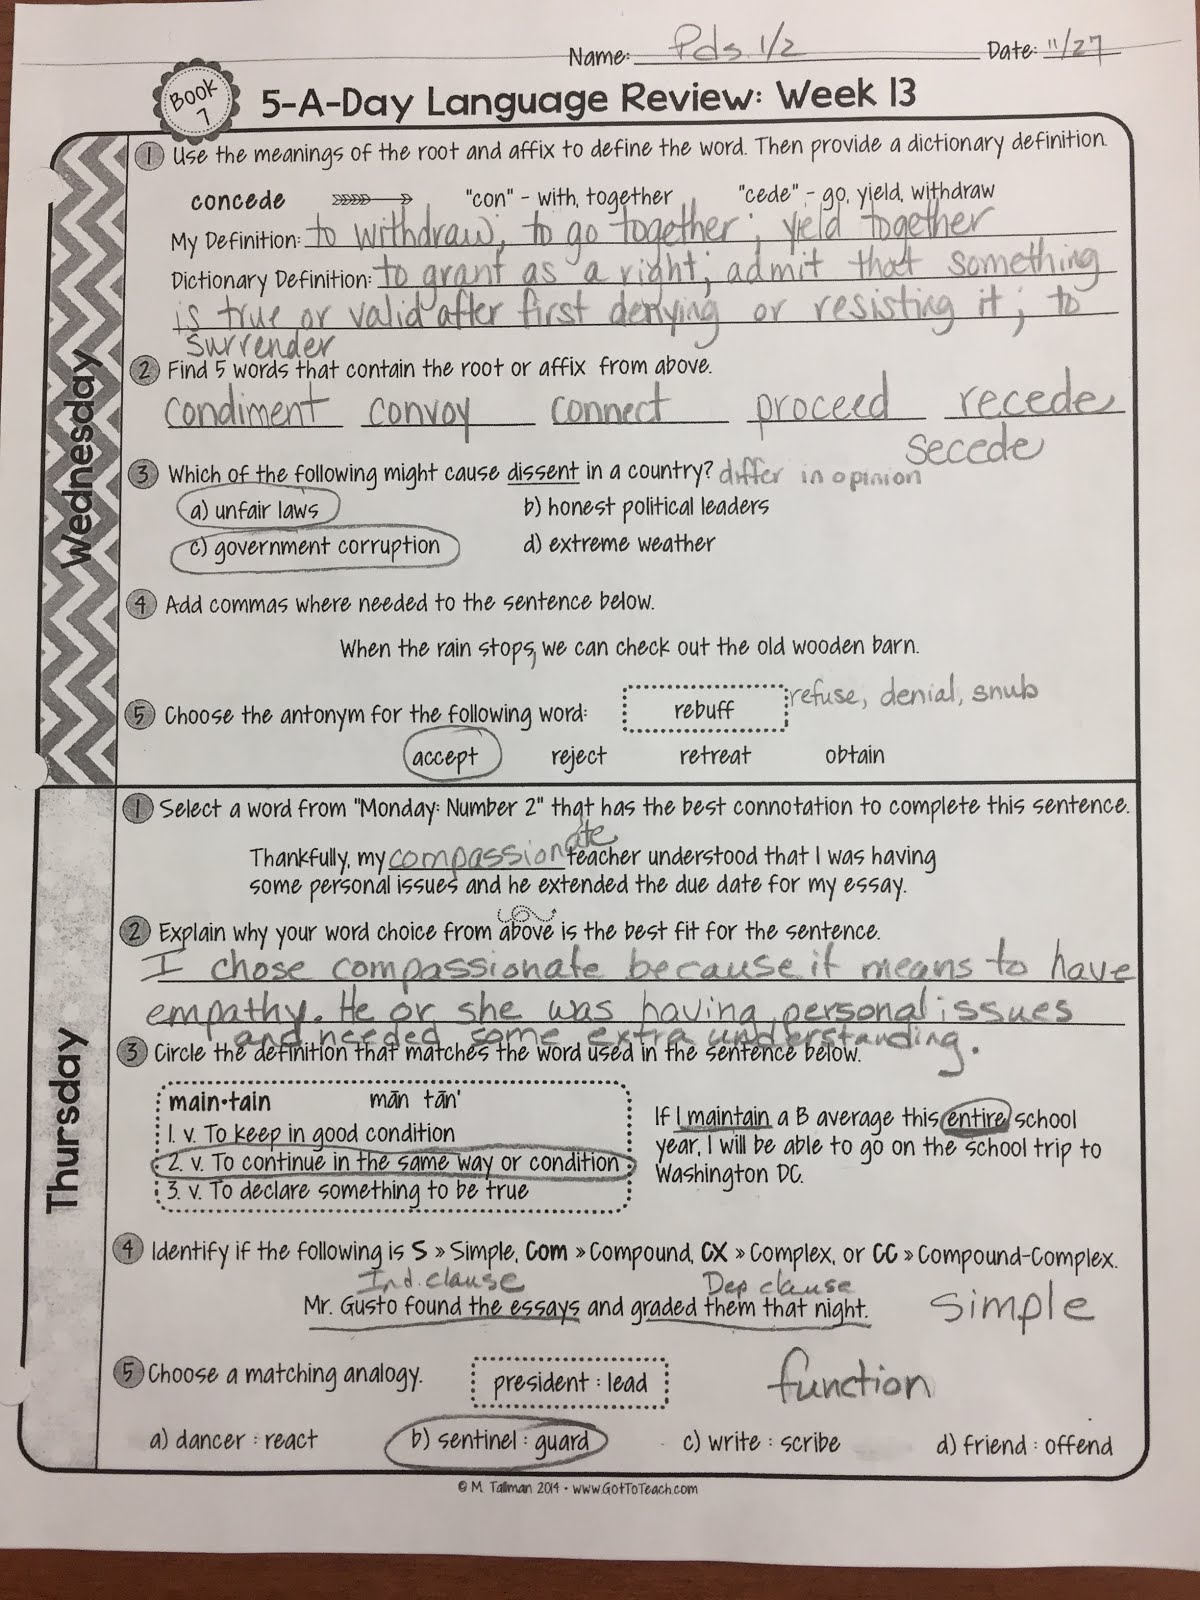 Name: Pds. 1/2 Date: 11/27
Book 7
5-A-Day Language Review: Week 13
Wednesday
1 Use the meanings of the root and affix to define the word. Then provide a dictionary definition.
concede "con" - with, together "cede" - go, yield, withdraw
My Definition: to withdraw; to go together; yeld together
Dictionary Definition: to grant as a right; admit that something
is true or valid after first denying or resisting it; to
surrender
2 Find 5 words that contain the root or affix from above.
condiment convoy connect proceed recede
secede
3 Which of the following might cause dissent in a country? differ in opinion
a) unfair laws b) honest political leaders
c) government corruption d) extreme weather
4 Add commas where needed to the sentence below.
When the rain stops, we can check out the old wooden barn.
5 Choose the antonym for the following word: rebuff refuse, denial, snub
accept reject retreat obtain
Thursday
1 Select a word from "Monday: Number 2" that has the best connotation to complete this sentence.
Thankfully, my compassionate teacher understood that I was having
some personal issues and he extended the due date for my essay.
2 Explain why your word choice from above is the best fit for the sentence.
I chose compassionate because it means to have
empathy. He or she was having personal issues
and needed some extra understanding.
3 Circle the definition that matches the word used in the sentence below.
main•tain mān tān'
1. v. To keep in good condition
2. v. To continue in the same way or condition
3. v. To declare something to be true
If I maintain a B average this entire school
year, I will be able to go on the school trip to
Washington DC.
4 Identify if the following is S » Simple, Com » Compound, CX » Complex, or CC » Compound-Complex.
Ind. clause Dep clause
Mr. Gusto found the essays and graded them that night. simple
5 Choose a matching analogy. president : lead function
a) dancer : react b) sentinel : guard c) write : scribe d) friend : offend
© M. Tallman 2014 • www.GotToTeach.com